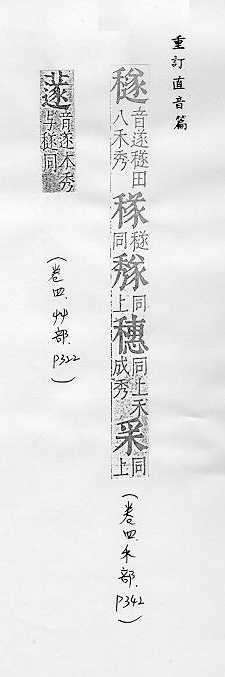 重訂直音篇
穟 音遂穟田八禾秀 穟同 同上 穗 同上禾成秀 采 同上
(卷四、禾部、P342)
音遂禾秀与穟同
(卷四、艸部、P322)